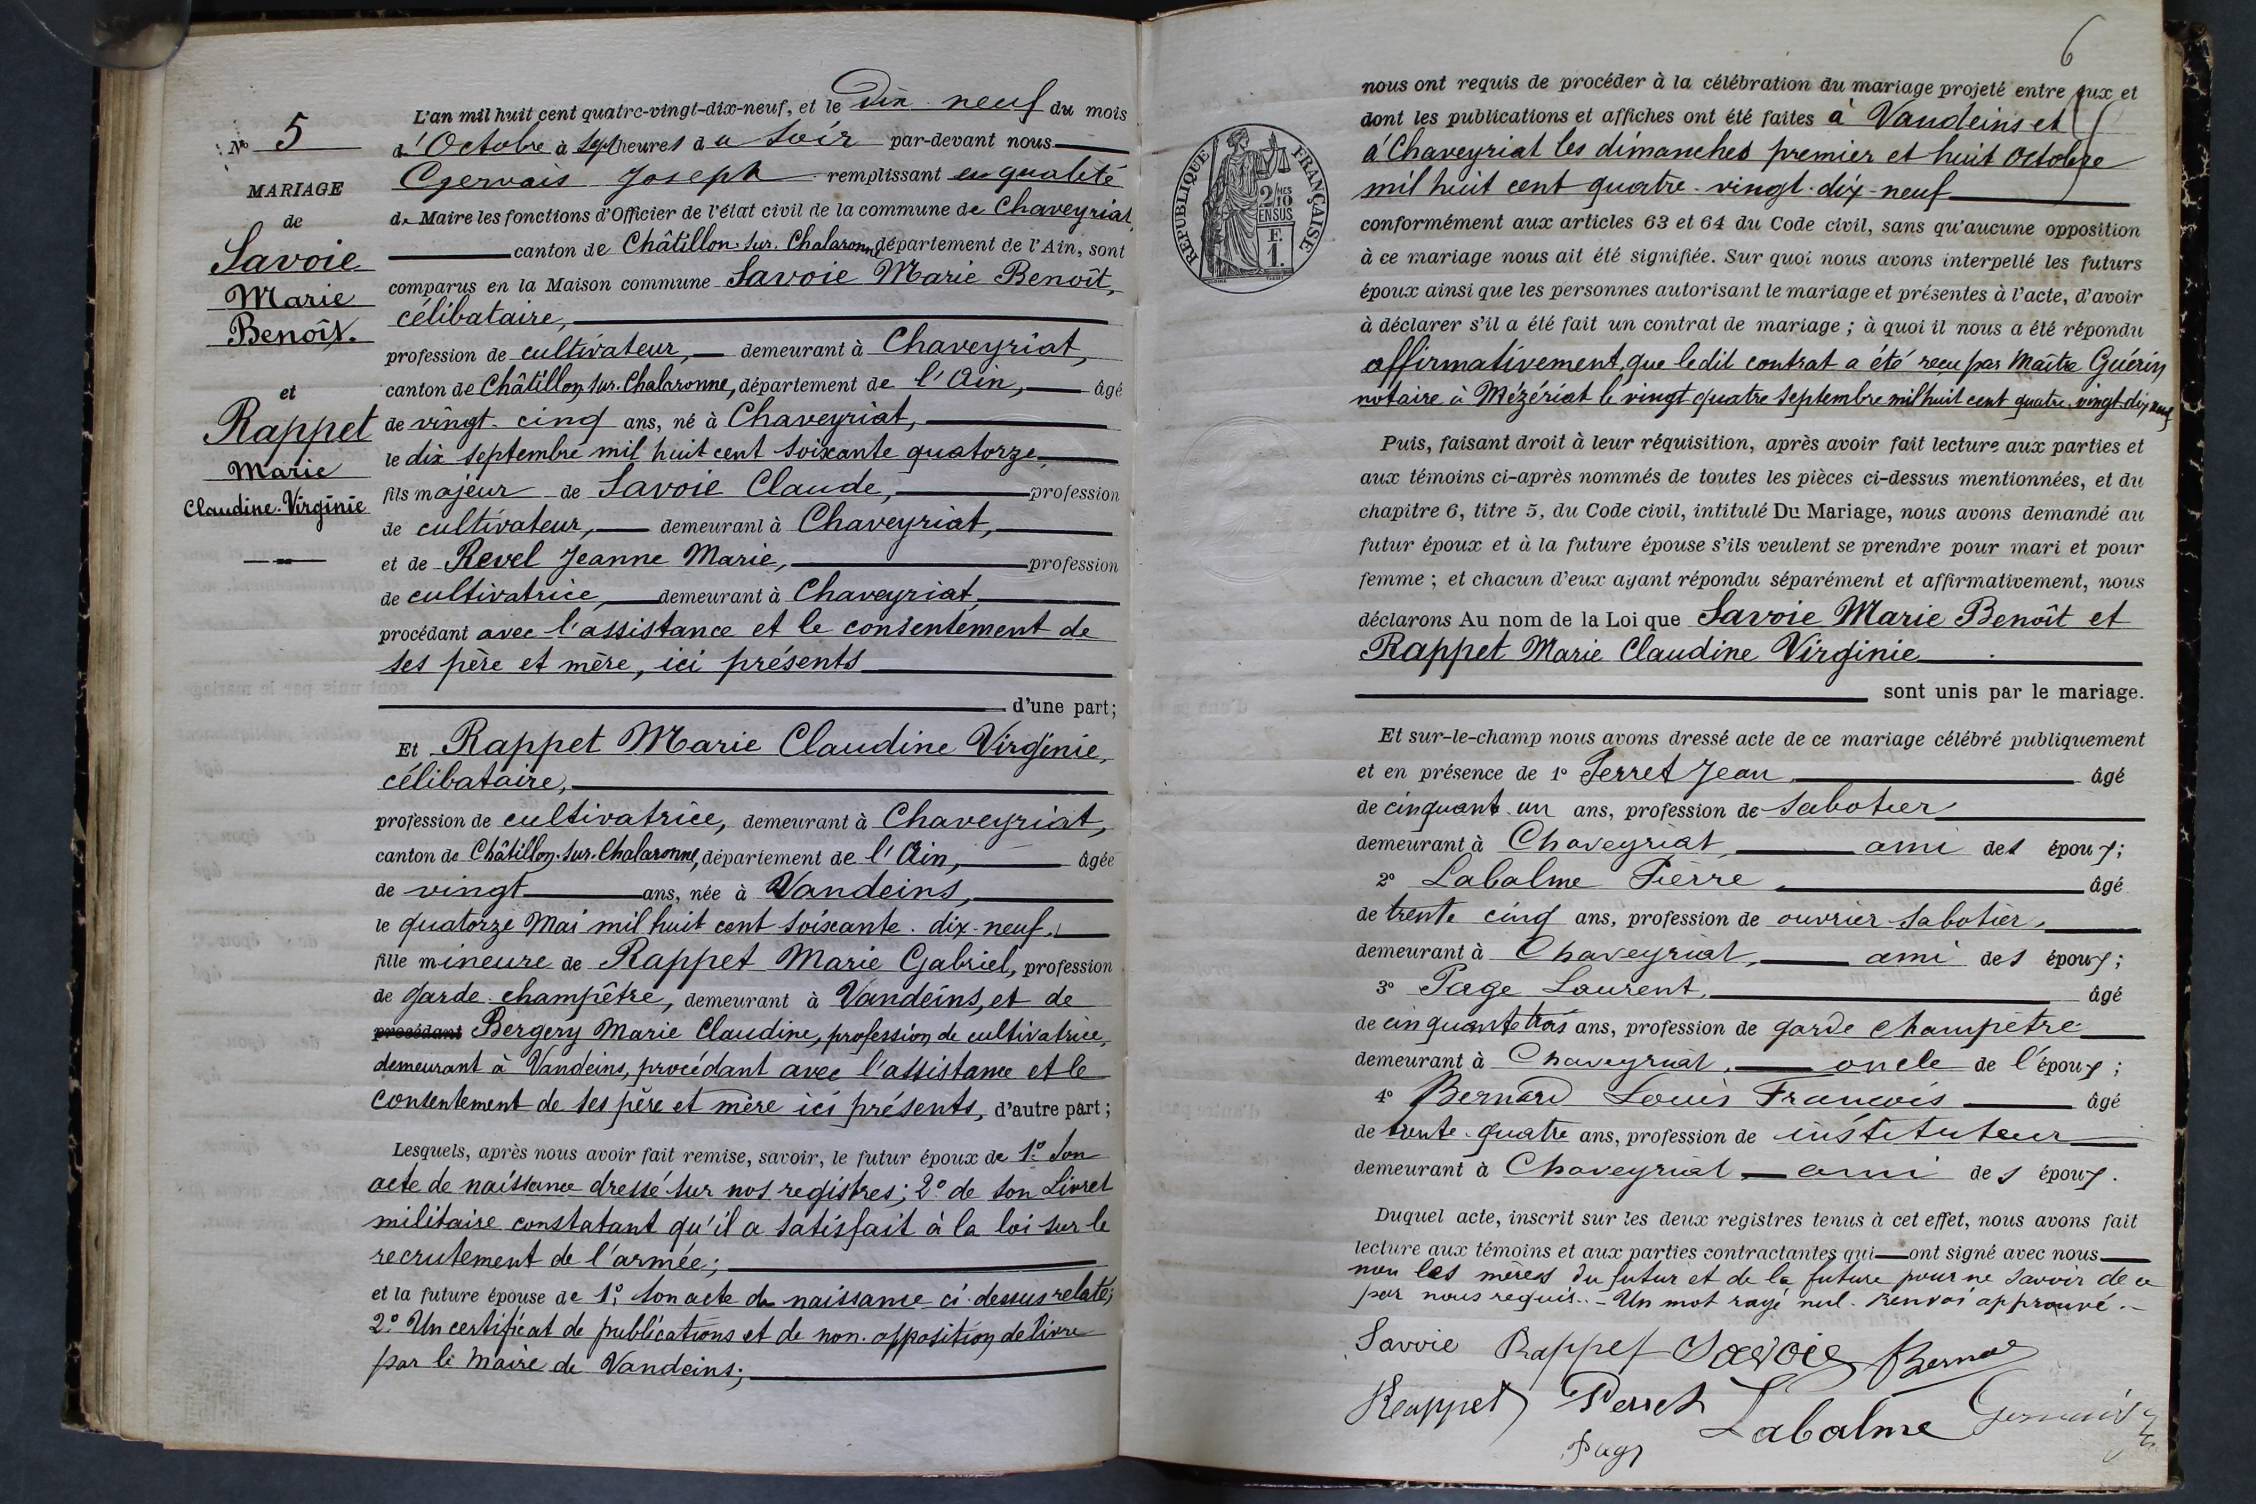 N° 5
MARIAGE
de
Savoie
Marie
Benoît.
et
Rappet
Marie
Claudine-Virginie
L'an mil huit cent quatre-vingt-dix-neuf, et le Dix-neuf du mois
d'Octobre à sept heures du soir par-devant nous
Gervais Joseph remplissant en qualité
de Maire les fonctions d'Officier de l'état civil de la commune de Chaveyriat,
canton de Châtillon-sur-Chalaronne département de l'Ain, sont
comparus en la Maison commune Savoie Marie Benoît,
célibataire,
profession de cultivateur, demeurant à Chaveyriat,
canton de Châtillon-sur-Chalaronne, département de l'Ain, âgé
de vingt-cinq ans, né à Chaveyriat,
le dix septembre mil huit cent soixante quatorze,
fils majeur de Savoie Claude, profession
de cultivateur, demeurant à Chaveyriat,
et de Revel Jeanne Marie, profession
de cultivatrice, demeurant à Chaveyriat,
procédant avec l'assistance et le consentement de
ses père et mère, ici présents
d'une part;
Et Rappet Marie Claudine Virginie,
célibataire,
profession de cultivatrice, demeurant à Chaveyriat,
canton de Châtillon-sur-Chalaronne, département de l'Ain, âgée
de vingt ans, née à Vandeins,
le quatorze Mai mil huit cent soixante-dix-neuf,
fille mineure de Rappet Marie Gabriel, profession
de garde-champêtre, demeurant à Vandeins, et de
procédant Bergery Marie Claudine, profession de cultivatrice,
demeurant à Vandeins, procédant avec l'assistance et le
consentement de ses père et mère ici présents, d'autre part;
Lesquels, après nous avoir fait remise, savoir, le futur époux de 1° Son
acte de naissance dressé sur nos registres; 2° de son Livret
militaire constatant qu'il a satisfait à la loi sur le
recrutement de l'armée;
et la future épouse de 1°, son acte de naissance ci-dessus relaté;
2° Un certificat de publications et de non-opposition delivré
par le Maire de Vandeins;
6
RÉPUBLIQUE FRANÇAISE
2/10 MES
EN SUS
F.
1.
nous ont requis de procéder à la célébration du mariage projeté entre eux et
dont les publications et affiches ont été faites à Vandeins et
à Chaveyriat les dimanches premier et huit octobre
mil huit cent quatre-vingt-dix-neuf
conformément aux articles 63 et 64 du Code civil, sans qu'aucune opposition
à ce mariage nous ait été signifiée. Sur quoi nous avons interpellé les futurs
époux ainsi que les personnes autorisant le mariage et présentes à l'acte, d'avoir
à déclarer s'il a été fait un contrat de mariage; à quoi il nous a été répondu
affirmativement, que le dit contrat a été reçu par Maître Guérin
notaire à Mézériat le vingt quatre septembre mil huit cent quatre-vingt-dix neuf
Puis, faisant droit à leur réquisition, après avoir fait lecture aux parties et
aux témoins ci-après nommés de toutes les pièces ci-dessus mentionnées, et du
chapitre 6, titre 5, du Code civil, intitulé Du Mariage, nous avons demandé au
futur époux et à la future épouse s'ils veulent se prendre pour mari et pour
femme; et chacun d'eux ayant répondu séparément et affirmativement, nous
déclarons Au nom de la Loi que Savoie Marie Benoît et
Rappet Marie Claudine Virginie
sont unis par le mariage.
Et sur-le-champ nous avons dressé acte de ce mariage célébré publiquement
et en présence de 1° Perret Jean âgé
de cinquant un ans, profession de sabotier
demeurant à Chaveyriat, ami des époux;
2° Labalme Pierre, âgé
de trente cinq ans, profession de ouvrier sabotier,
demeurant à Chaveyriat, ami des époux;
3° Page Laurent, âgé
de cinquante trois ans, profession de garde champêtre
demeurant à Chaveyriat, oncle de l'époux;
4° Bernard Louis François âgé
de trente-quatre ans, profession de instituteur
demeurant à Chaveyriat ami des époux.
Duquel acte, inscrit sur les deux registres tenus à cet effet, nous avons fait
lecture aux témoins et aux parties contractantes qui ont signé avec nous
non les mères du futur et de la future pour ne savoir de ce
par nous requis. - Un mot rayé nul. Renvoi approuvé. -
Savoie Rappet Savoie Bernard
Rappet Perret Labalme Gervais
Page